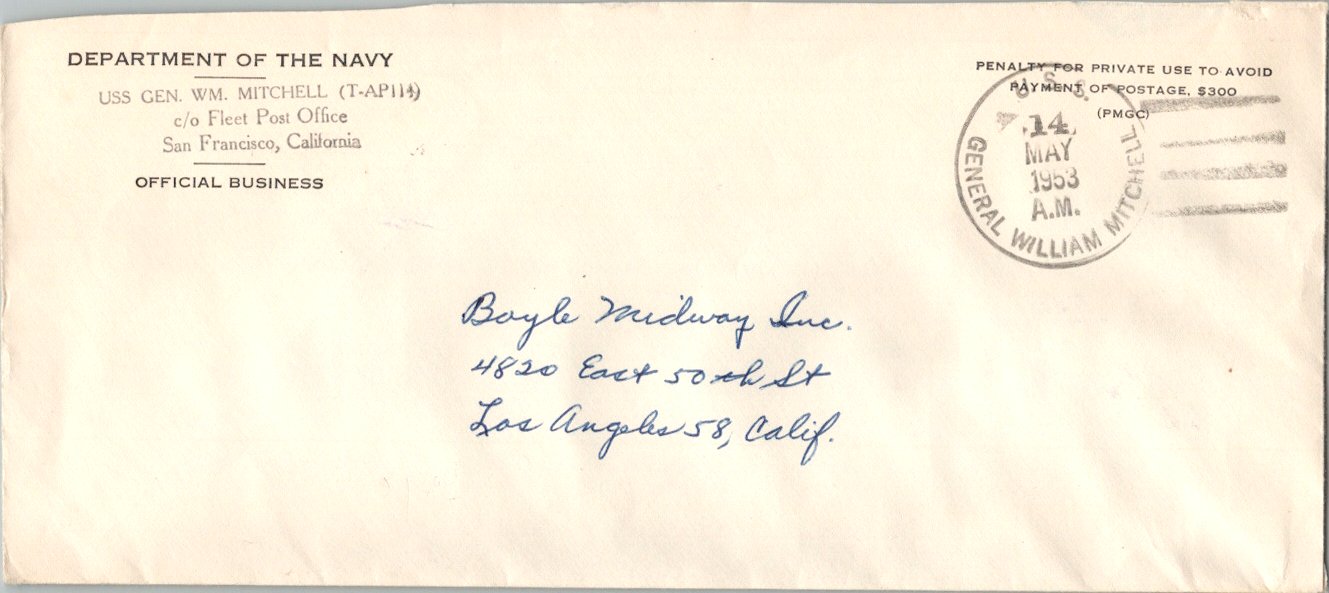 DEPARTMENT OF THE NAVY
USS GEN. WM. MITCHELL (T-AP114)
c/o Fleet Post Office
San Francisco, California
OFFICIAL BUSINESS
PENALTY FOR PRIVATE USE TO AVOID
PAYMENT OF POSTAGE, $300
(PMGC)
U.S.S.
14
MAY
1953
A.M.
GENERAL WILLIAM MITCHELL
Boyle Midway Inc.
4820 East 50th St
Los Angeles 58, Calif.